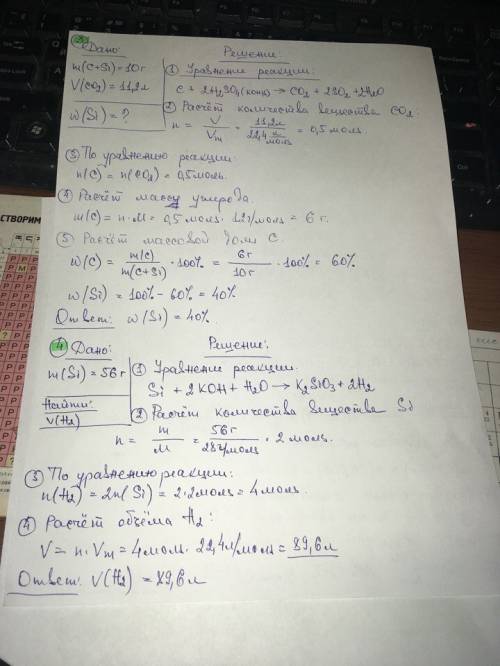 ③
Дано:
Решение:
m(C+Si)=10г
V(CO2)=11,2л
w(Si)=?
① Уравнение реакции:
C + 2H2SO4(конц) → CO2 + 2SO2 + 2H2O
② Расчёт количества вещества CO2
n = V/Vm = 11,2л/22,4 л/моль = 0,5 моль
③ По уравнению реакции:
n(C) = n(CO2) = 0,5 моль.
④ Расчёт массы углерода.
m(C) = n·M = 0,5 моль · 12 г/моль = 6 г.
⑤ Расчёт массовой доли C.
w(C) = m(C)/m(C+Si) · 100% = 6г/10г · 100% = 60%
w(Si) = 100% - 60% = 40%
Ответ: w(Si) = 40%
④ Дано:
Решение:
m(Si) = 56г
Найти:
V(H2)
① Уравнение реакции:
Si + 2KOH + H2O → K2SiO3 + 2H2
② Расчёт количества вещества Si
n = m/M = 56г/28г/моль · 2 моль.
③ По уравнению реакции:
n(H2) = 2n(Si) = 2·2моль = 4моль
④ Расчёт объёма H2:
V = n·Vm = 4моль · 22,4л/моль = 89,6 л
Ответ: V(H2) = 89,6л